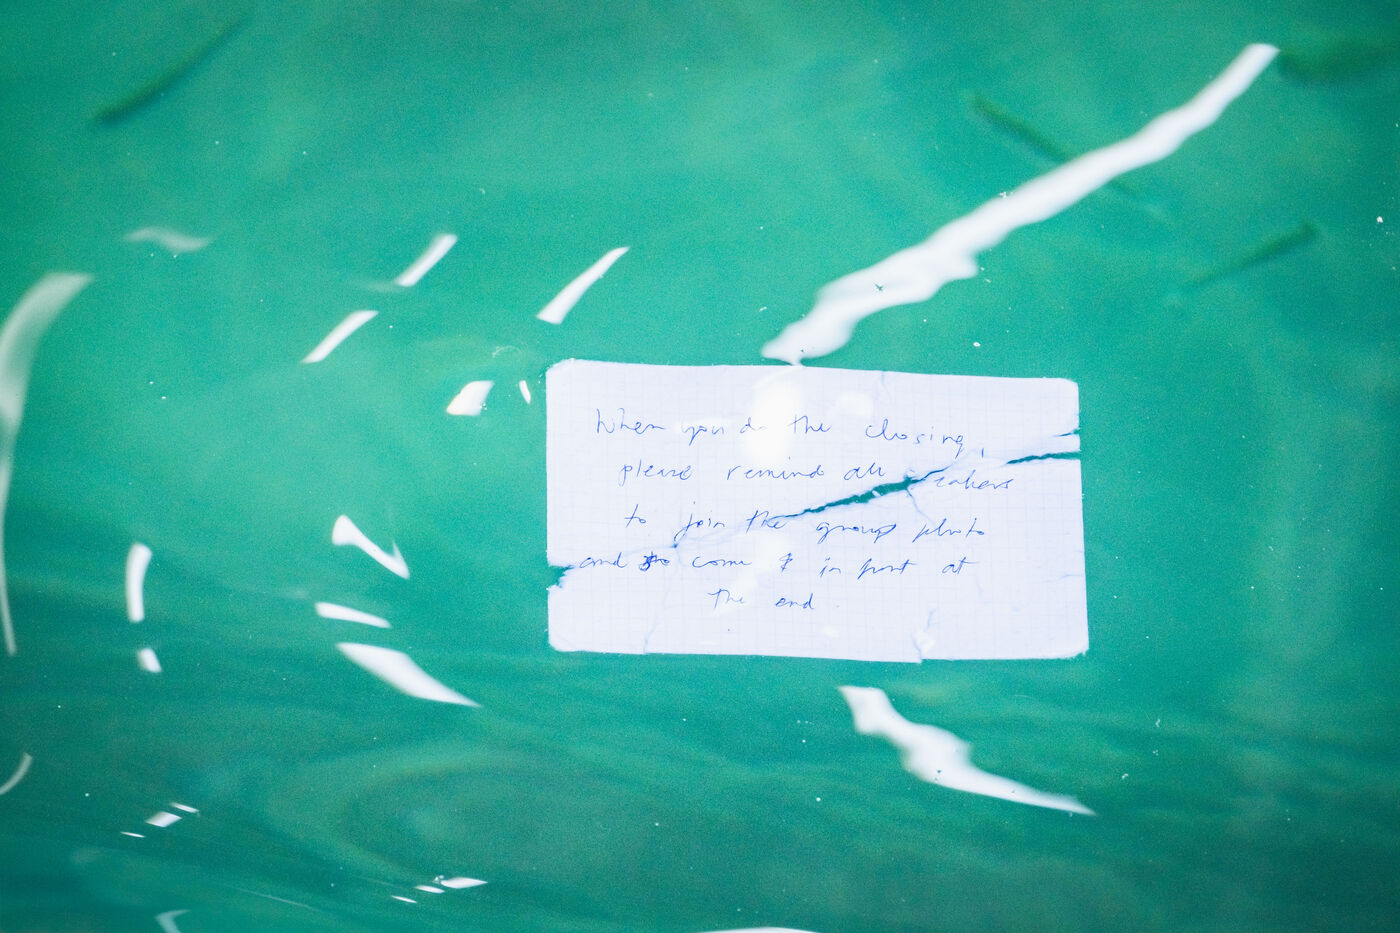 When you do the closing,
please remind all
to join the group photo
and come in front at
the end